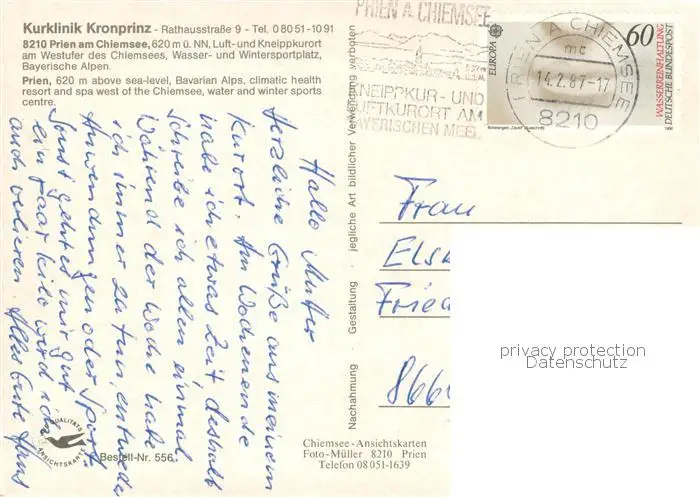 Kurklinik Kronprinz - Rathausstraße 9 - Tel. 0 80 51-10 91
8210 Prien am Chiemsee, 620 m ü. NN, Luft- und Kneippkurort
am Westufer des Chiemsees, Wasser- und Wintersportplatz,
Bayerische Alpen.
Prien, 620 m above sea-level, Bavarian Alps, climatic health
resort and spa west of the Chiemsee, water and winter sports
centre.
Hallo Mutter
Herzliche Grüße aus meinem
Kurort. Am Wochenende
habe ich etwas Zeit deshalb
schreibe ich allen einmal.
Während der Woche habe
ich immer zu tun, entweder
Anwendungen oder Sport.
Sonst geht es mir gut
ein paar kilo werd ich
auch verlieren. Alles Gute Hans
QUALITÄTS
ANSICHTSKARTE
Bestell-Nr. 556
Nachahmung · Gestaltung · jegliche Art bildlicher Verwendung verboten
Chiemsee-Ansichtskarten
Foto-Müller 8210 Prien
Telefon 08051-1639
PRIEN A. CHIEMSEE
KNEIPPKUR- UND
LUFTKURORT AM
BAYERISCHEN MEER
PRIEN A CHIEMSEE
mc
14.2.87-17
8210
EUROPA
60
WASSERREINHALTUNG
DEUTSCHE BUNDESPOST
1986
Frau
Els
Fried
866
privacy protection
Datenschutz